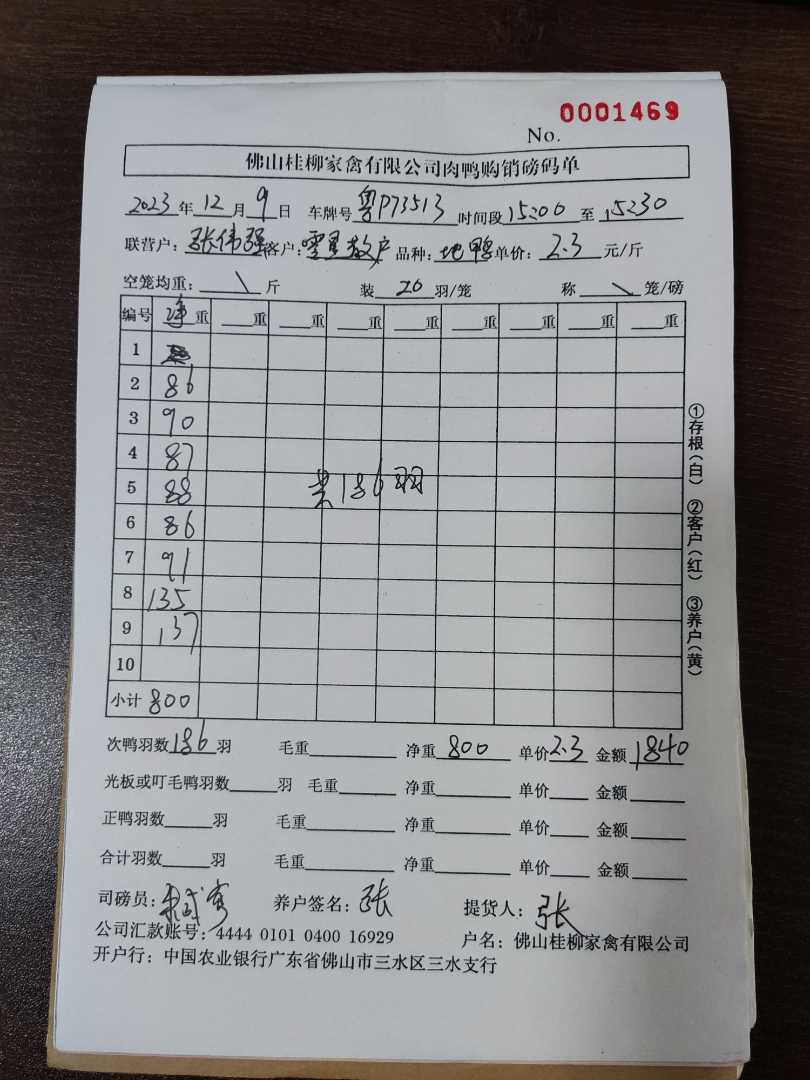 No. 0001469
佛山桂柳家禽有限公司肉鸭购销磅码单
2023年12月9日 车牌号粤P73513时间段15:00至15:30
联营户:张伟强客户:零星散户品种:地鸭单价:2.3元/斤
空笼均重:\斤 装20羽/笼 称\笼/磅
编号 净重 重 重 重 重 重 重 重 重
1
2 86
3 90
4 87
5 88 共186羽
6 86
7 91
8 135
9 137
10
小计 800
①存根(白) ②客户(红) ③养户(黄)
次鸭羽数186羽 毛重 净重800 单价2.3 金额1840
光板或叮毛鸭羽数 羽 毛重 净重 单价 金额
正鸭羽数 羽 毛重 净重 单价 金额
合计羽数 羽 毛重 净重 单价 金额
司磅员: 养户签名:张 提货人:张
公司汇款账号:4444 0101 0400 16929 户名:佛山桂柳家禽有限公司
开户行:中国农业银行广东省佛山市三水区三水支行